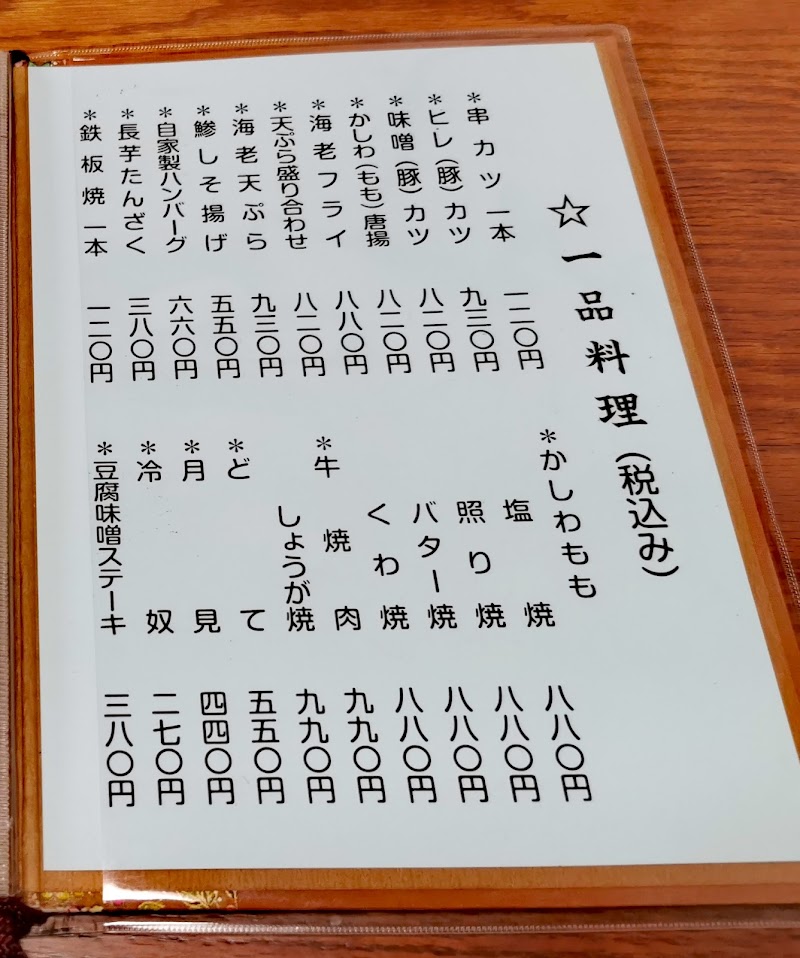 ☆一品料理(税込み)
＊串カツ一本 一二〇円
＊ヒレ(豚)カツ 九三〇円
＊味噌(豚)カツ 八二〇円
＊かしわ(もも)唐揚 八二〇円
＊海老フライ 八八〇円
＊天ぷら盛り合わせ 八二〇円
＊海老天ぷら 九三〇円
＊鯵しそ揚げ 五五〇円
＊自家製ハンバーグ 六六〇円
＊長芋たんざく 三八〇円
＊鉄板焼一本 一二〇円
＊かしわもも
塩焼 八八〇円
照り焼 八八〇円
バター焼 八八〇円
くわ焼 八八〇円
＊牛焼肉 九九〇円
しょうが焼 九九〇円
＊どて 五五〇円
＊月見 四四〇円
＊冷奴 二七〇円
＊豆腐味噌ステーキ 三八〇円